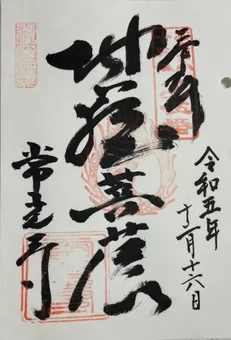 奉拝
令和五年
十二月十六日
地蔵菩薩
常光寺